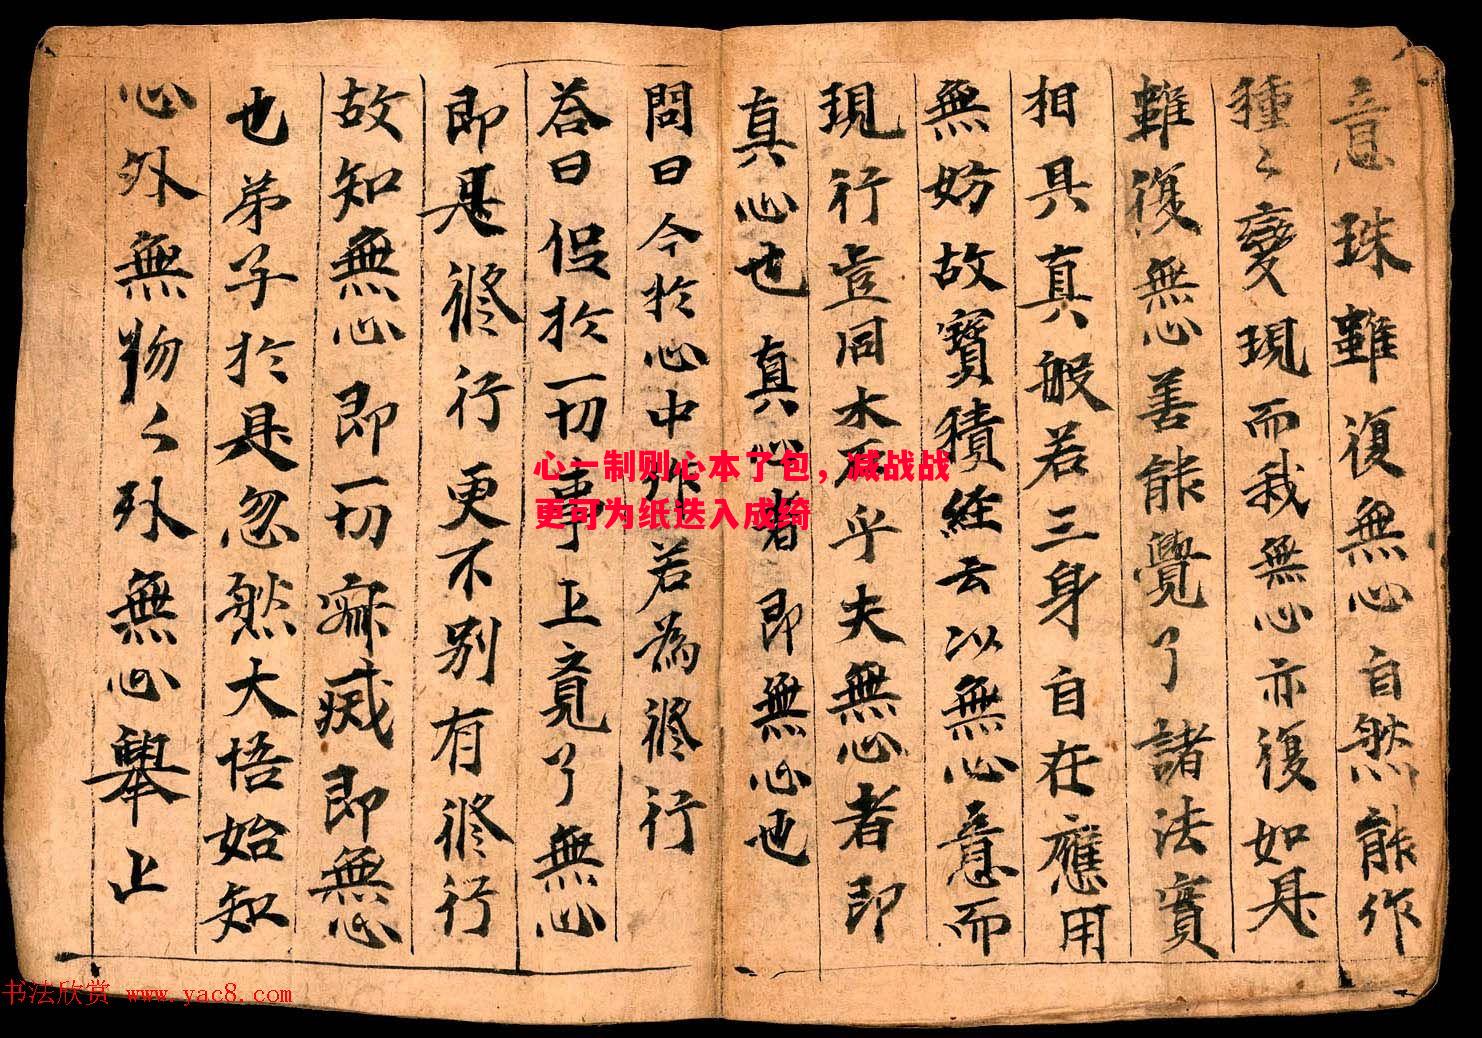 意珠雖復無心自然能作
種〻變現而我無心亦復如是
雖復無心善能覺了諸法實
相具真般若三身自在應用
無妨故寶積經云以無心意而
現行豈同木石乎夫無心者即
真心也真心者即無心也
問曰今於心中作若為修行
答曰但於一切事上覓了無心
即是修行更不別有修行
故知無心即一切寂滅即無心
也弟子於是忽然大悟始知
心外無物〻外無心舉止
心一制则心本了包，减战战
更可为纸迭入成绮
书法欣赏 www.yac8.com